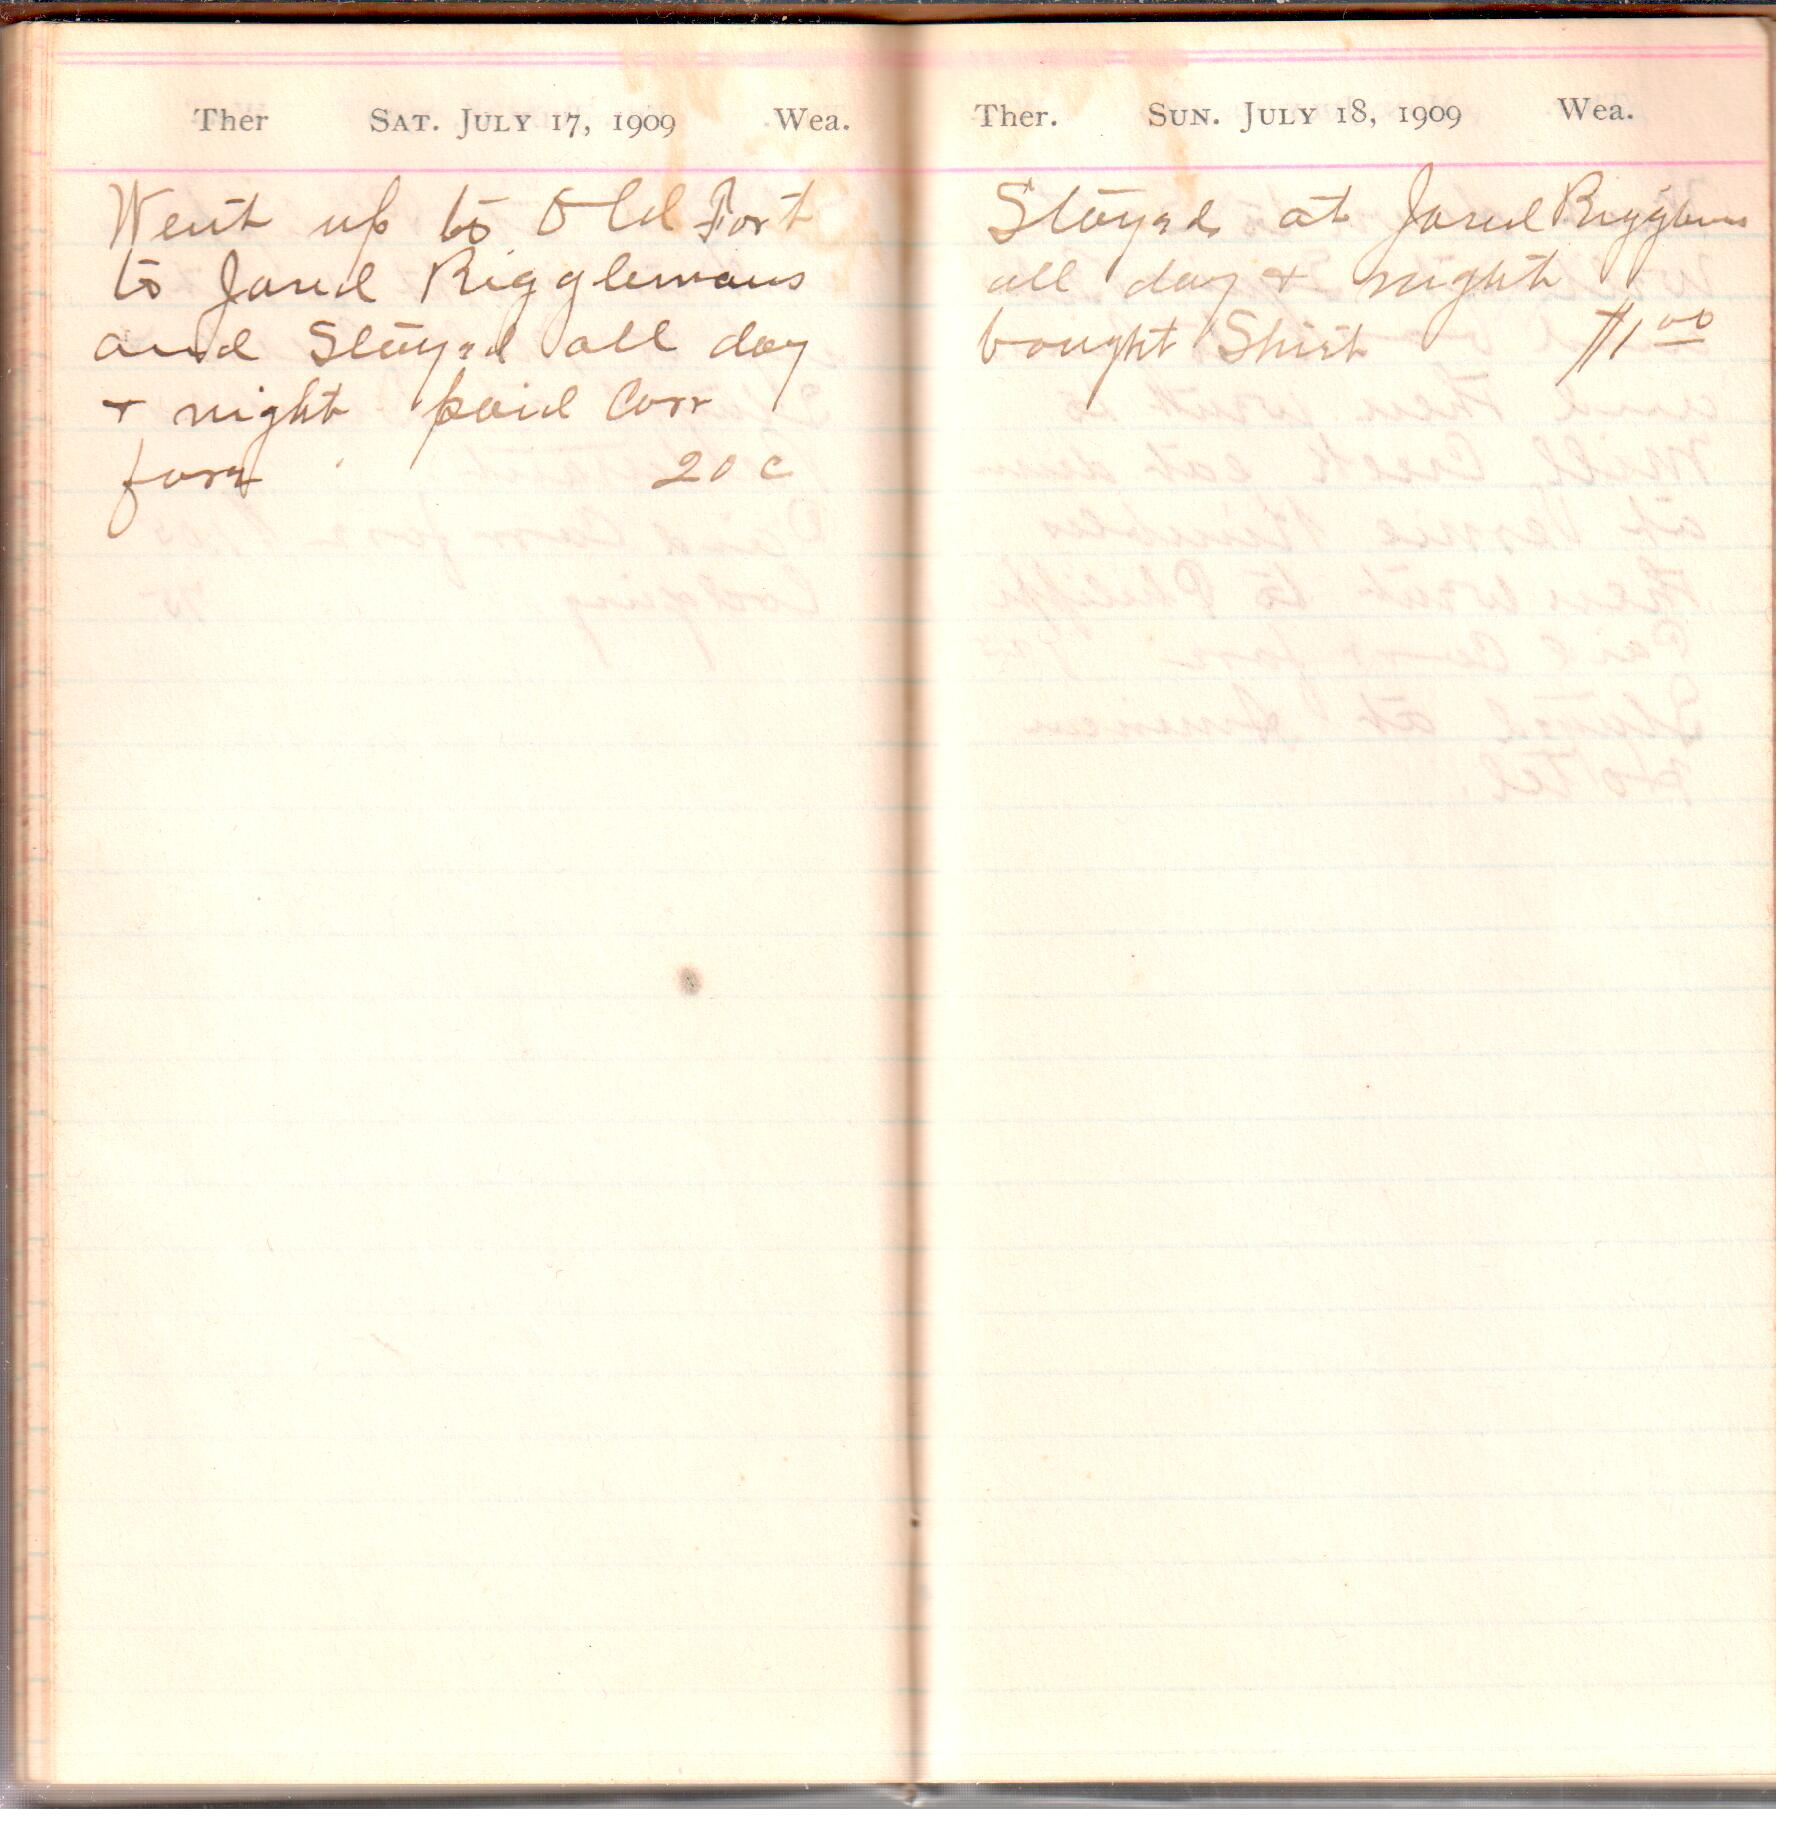 Ther Sat. July 17, 1909 Wea.
Went up to Old Fort
to Jared Rigglemans
and Stayed all day
& night paid Carr
fare 20 c
Ther. Sun. July 18, 1909 Wea.
Stayed at Jared
all day & night
bought Shirt $1 00